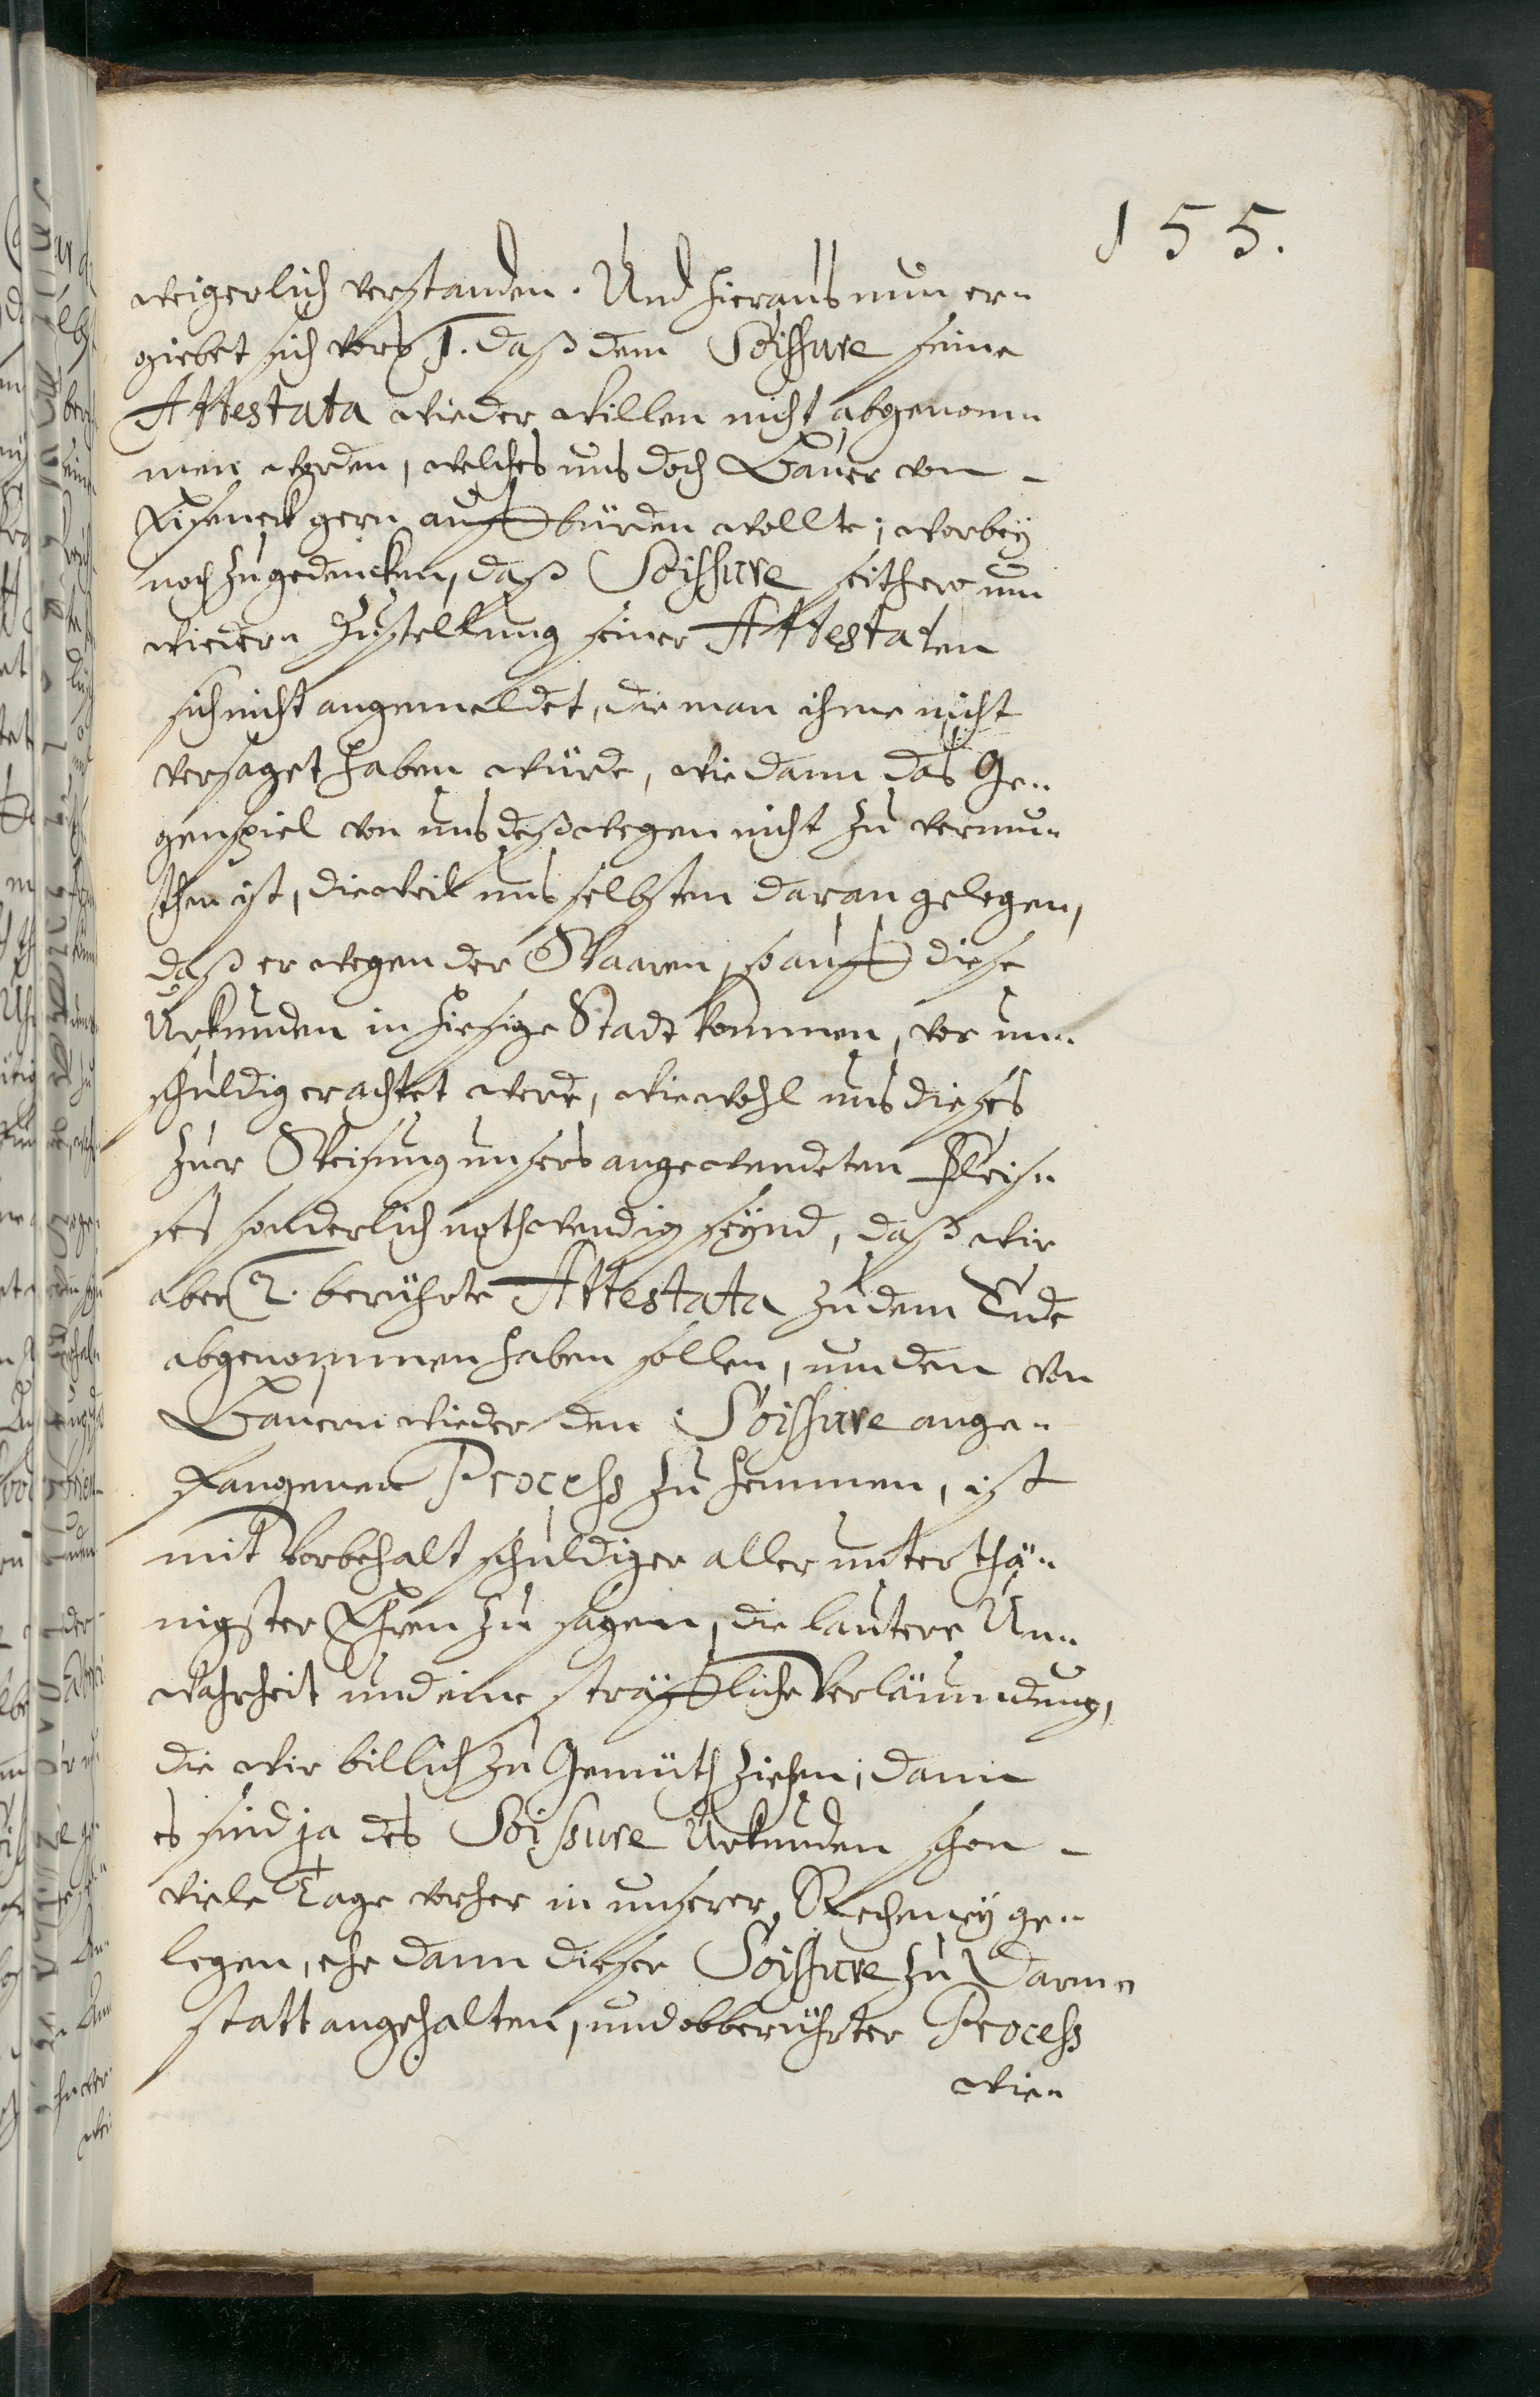 155.
weigerlich verstanden. Und hieraus nun er-
giebet sich vors 1. daß dem Soissure seine
Attestata wieder willen nicht abgenom-
men worden, welches uns doch Bauer von -
Eiseneck gern auffbürden wollte; worbey
noch zugedencken, daß Soissure seithero um
wiedern Zustellung seiner Attestaten
sich nicht angemeldet, die man ihme nicht
versaget haben würde, wie dann das Ge-
genspiel von uns deßwegen nicht zu vermu-
then ist, dieweil uns selbsten daran gelegen,
daß er wegen der Waaren, so auff diese
Urkunden in hiesige Stadt kommen, vor un-
schuldig erachtet werde, wiewohl uns dieses
zur Weisung unsers angewendeten Fleis-
ses sonderlich nothwendig seynd, daß wir
aber 2. berührte Attestata zu dem Ende
abgenommen haben sollen, um den von
Bauern wieder den Soissure ange-
fangenen Process zu hemmen, ist
mit Vorbehalt schuldiger aller unterthä-
nigster Ehren zu sagen, die lautere Un-
wahrheit und eine sträffliche Verläumdung,
die wir billich zu Gemüth ziehen; dann
es sind ja des Soissure Urkunden schon -
viele Tage vorher in unserer Rechney ge-
legen, ehe dann dieser Soissure zu Darm-
statt angehalten, und obberührter Process
wie-